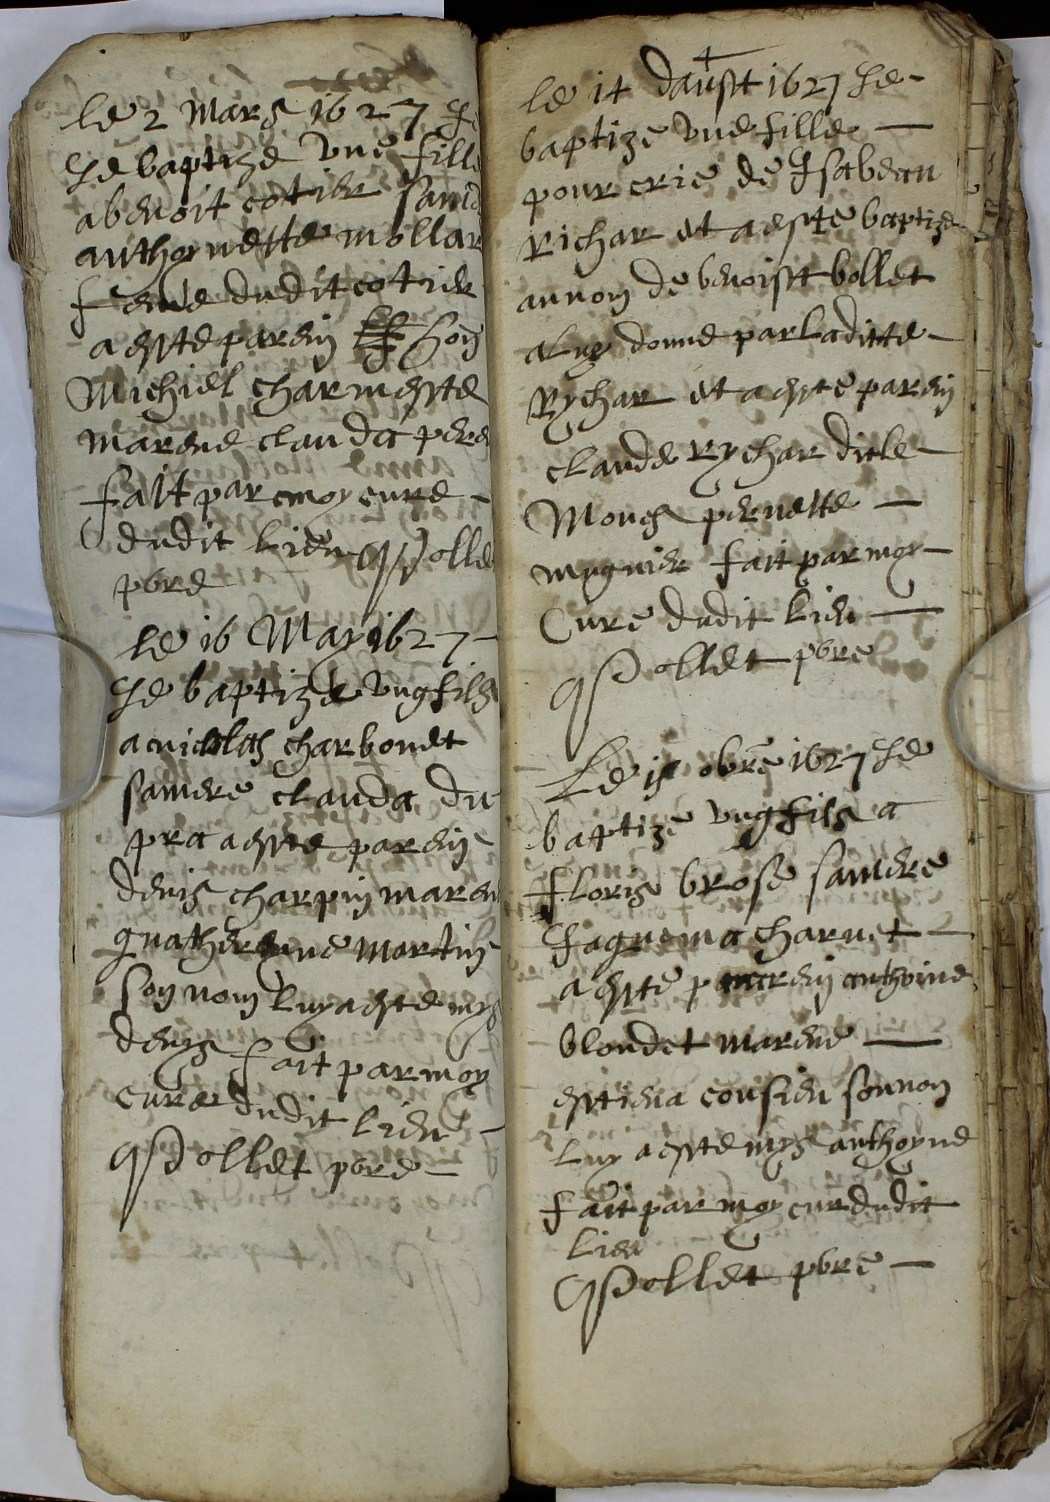 Le 2 Mars 1627 Je
Je baptize une fille
a benoit cotier sa mere
anthoynette mollar
feme dudit cotier
a este parein hon
Michiel charmeste
marene clauda pere
fait par moy cure
dudit lieu Pollet
pbre
Le 16 May 1627
Je baptize ung fils
a nicolas charbonet
sa mere clauda du
pra a este parein
denis charpin maren
quatherenne martin
son nom luy a este mys
denys fait par moy
cure dudit lieu
Pollet pbre
Le 14 daust 1627 Je
baptize une fille
pour crie de Isabeau
Richar et a este baptize
au nom de benoist bollet
a luy donne par laditte
Rychar et a este parein
claude Rychar dit le
Moues pernette
mugnier fait par moy
Cure dudit lieu
Pollet pbre
Le obre 1627 Je
baptize ung fils a
floris brose sa mere
Jaquema charvet
a este parein anthoine
blondet marene
estiena cousien son nom
luy a este mys anthoyne
fait par moy cure dudit
lieu
Pollet pbre